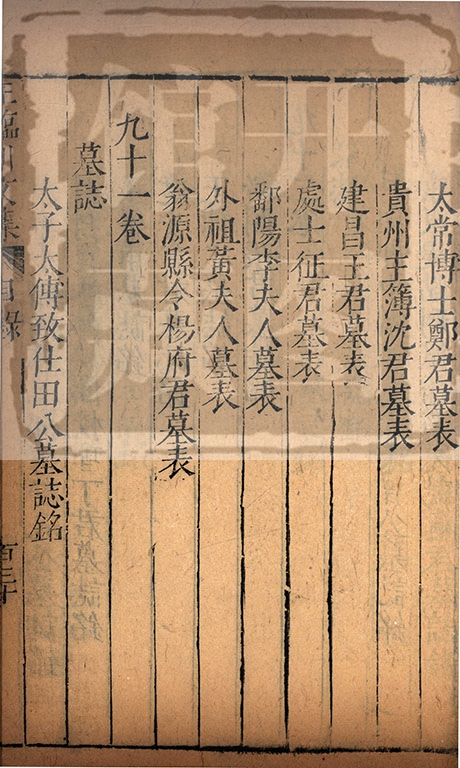 太常博士鄭君墓表
貴州主簿沈君墓表
建昌王君墓表
處士征君墓表
鄱陽李夫人墓表
外祖黃夫人墓表
翁源縣令楊府君墓表
九十一卷
墓誌
太子太傅致仕田公墓誌銘
王臨川文集 目錄